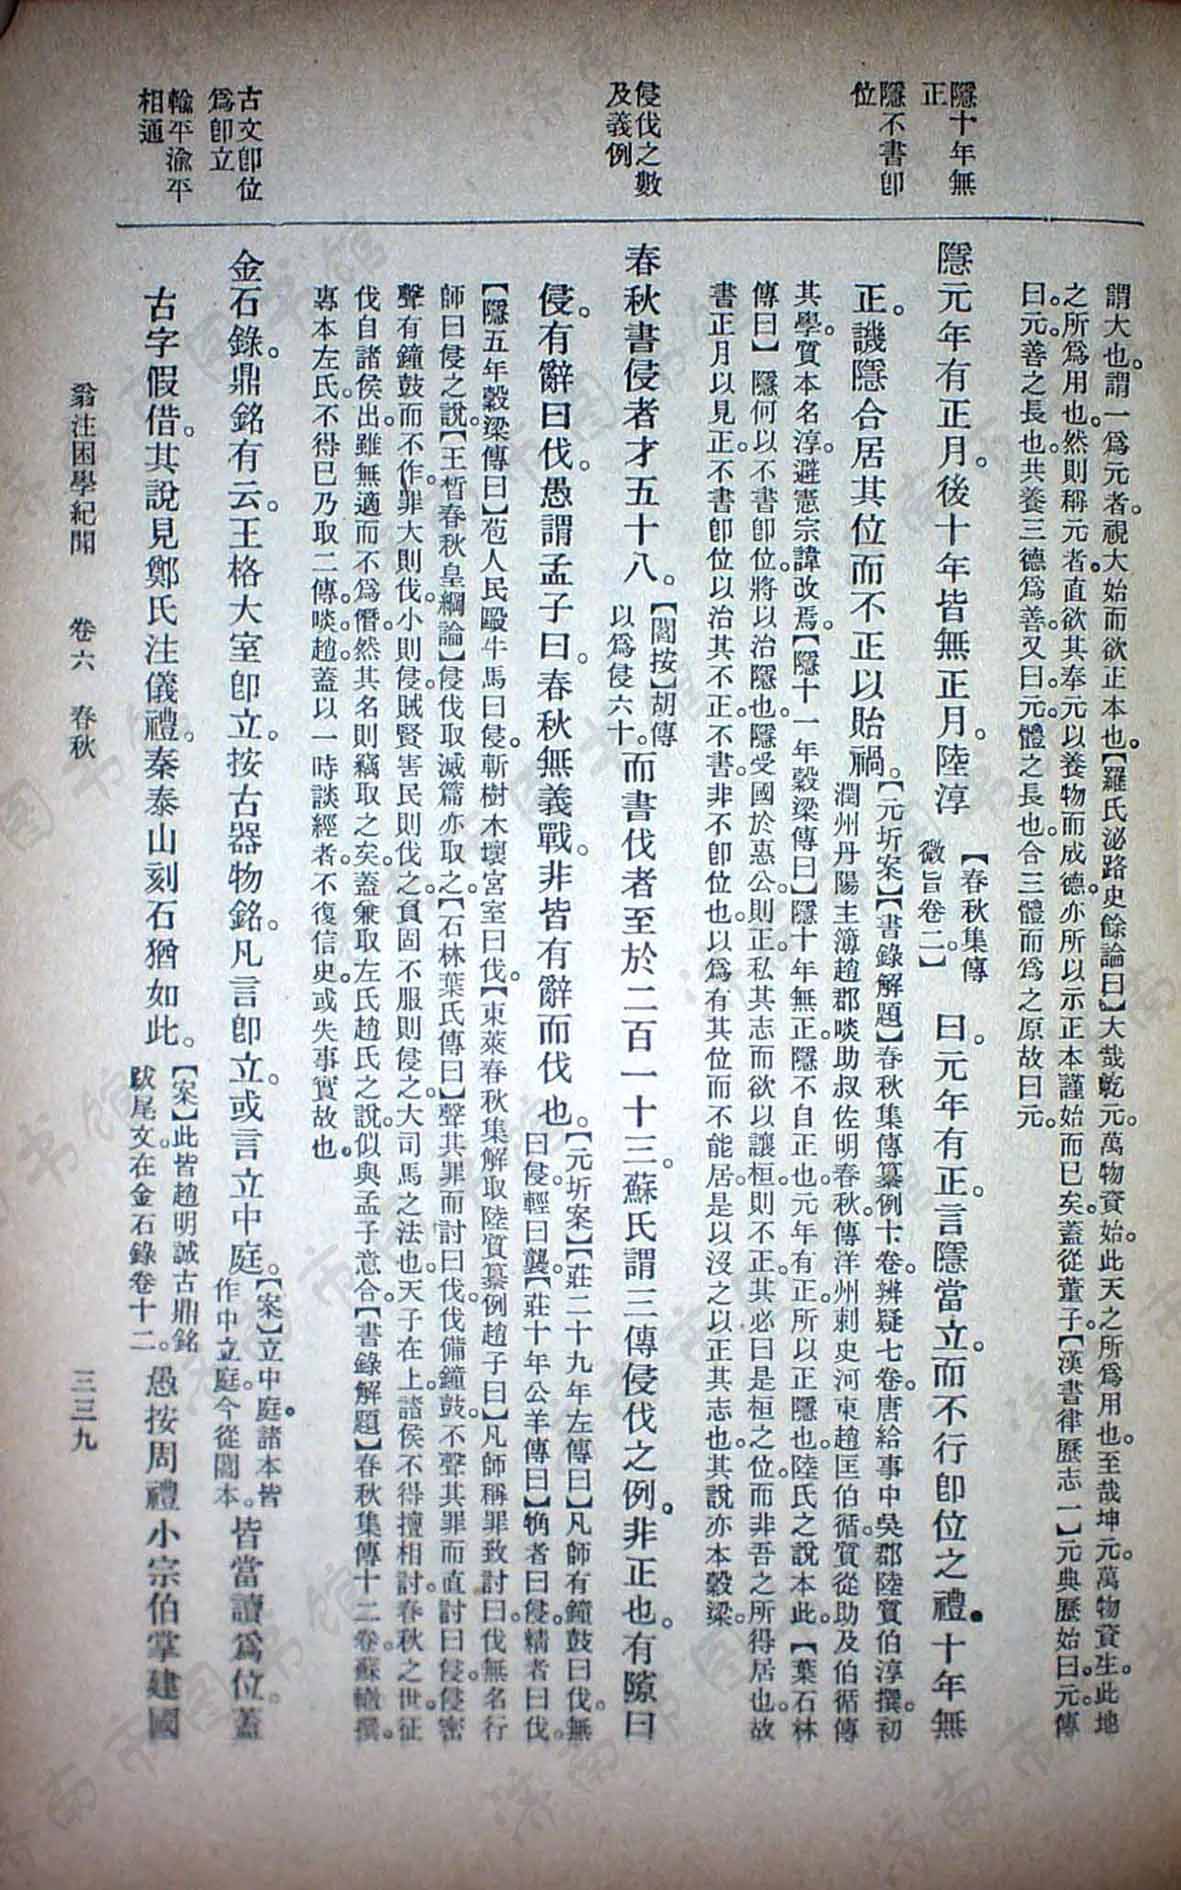 隱十年無
正
隱不書卽
位
侵伐之數
及義例
古文卽位
爲卽立
輸平渝平
相通
謂大也。謂一爲元者。視大始而欲正本也。【羅氏泌路史餘論曰】大哉乾元。萬物資始。此天之所爲用也。至哉坤元。萬物資生。此地
之所爲用也。然則稱元者。直欲其奉元以養物而成德。亦所以示正本謹始而已矣。蓋從董子。【漢書律歷志一】元典歷始曰元。傳
曰。元。善之長也。共養三德爲善。又曰。元。體之長也。合三體而爲之原。故曰元。
隱元年有正月。後十年皆無正月。陸淳【春秋集傳
微旨卷二。】曰。元年有正。言隱當立。而不行卽位之禮。十年無
正。譏隱合居其位而不正以貽禍。【元圻案】【書錄解題】春秋集傳纂例十卷。辨疑七卷。唐給事中吳郡陸質伯淳撰。初
潤州丹陽主簿趙郡啖助叔佐明春秋。傳洋州刺史河東趙匡伯循。質從助及伯循傳
其學。質本名淳。避憲宗諱改焉。【隱十一年穀梁傳曰】隱十年無正。隱不自正也。元年有正。所以正隱也。陸氏之說本此。【葉石林
傳曰】隱何以不書卽位。將以治隱也。隱受國於惠公。則正。私其志而欲以讓桓。則不正。其必曰是桓之位。而非吾之所得居也。故
書正月以見正。不書卽位以治其不正。不書。非不卽位也。以爲有其位而不能居。是以沒之以正其志也。其說亦本穀梁。
春秋書侵者才五十八。【閻按】胡傳
以爲侵六十。而書伐者至於二百一十三。蘇氏謂三傳侵伐之例。非正也。有隙曰
侵。有辭曰伐。愚謂孟子曰。春秋無義戰。非皆有辭而伐也。【元圻案】【莊二十九年左傳曰】凡師有鐘鼓曰伐。無
曰侵。輕曰襲。【莊十年公羊傳曰】觕者曰侵。精者曰伐。
【隱五年穀梁傳曰】苞人民毆牛馬曰侵。斬樹木壞宮室曰伐。【東萊春秋集解取陸質纂例趙子曰】凡師稱罪致討曰伐。無名行
師曰侵之說。【王晳春秋皇綱論】侵伐取滅篇亦取之。【石林葉氏傳曰】聲其罪而討曰伐。伐備鐘鼓。不聲其罪而直討曰侵。侵密
聲有鐘鼓而不作。罪大則伐。小則侵。賊賢害民則伐之。負固不服則侵之。大司馬之法也。天子在上。諸侯不得擅相討。春秋之世。征
伐自諸侯出。雖無適而不爲僭。然其名則竊取之矣。蓋兼取左氏趙氏之說。似與孟子意合。【書錄解題】春秋集傳十二卷。蘇轍撰。
專本左氏。不得已乃取二傳啖趙。蓋以一時談經者。不復信史。或失事實故也。
金石錄。鼎銘有云。王格大室卽立。按古器物銘。凡言卽立。或言立中庭。【案】立中庭。諸本皆
作中立庭。今從閻本。皆當讀爲位。蓋
古字假借。其說見鄭氏注儀禮。秦泰山刻石猶如此。【案】此皆趙明誠古鼎銘
跋尾文。在金石錄卷十二。愚按周禮小宗伯掌建國
翁注困學紀聞 卷六 春秋
三三九